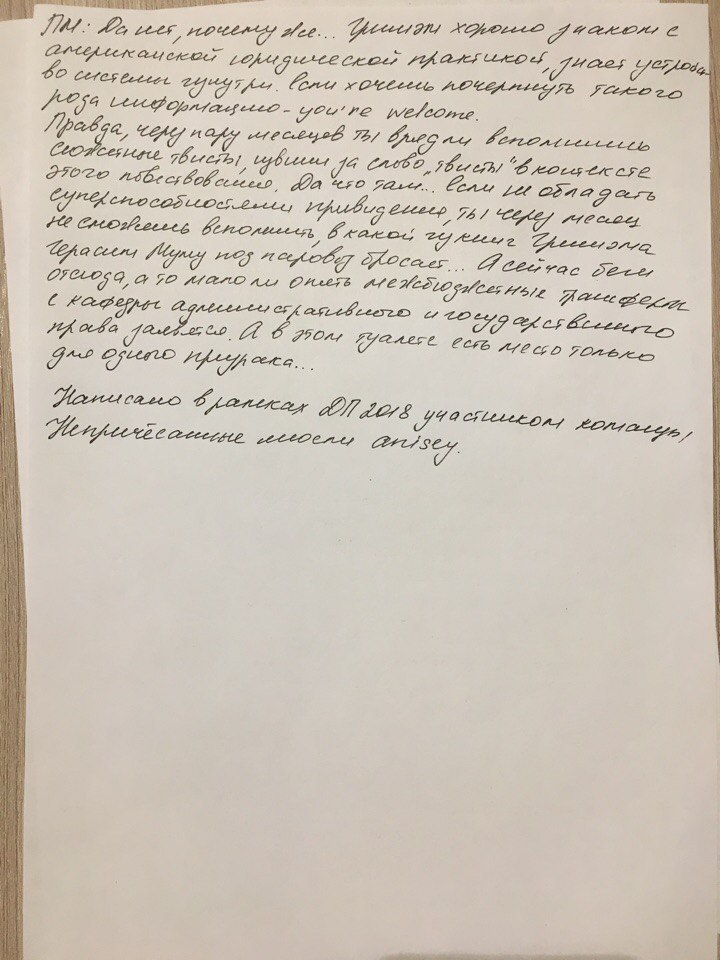 ПМ: Да нет, почему же... Гришэм хорошо знаком с
американской юридической практикой, знает устройст-
во системы изнутри. Если хочешь почерпнуть такого
рода информацию - you're welcome.
Правда, через пару месяцев ты вряд ли вспомнишь
сюжетные твисты, извини за слово „твисты" в контексте
этого повествования. Да что там... Если не обладать
суперспособностями привидения, ты через месяц
не сможешь вспомнить, в какой из книг Гришэма
Герасим Муму под паровоз бросает... А сейчас беги
отсюда, а то мало ли опять межбюджетные трансферы
с кафедры административного и государственного
права заявятся. А в этом туалете есть место только
для одного призрака...
Написано в рамках ДП 2018 участником команды
Непричёсанные мюсли anisey.